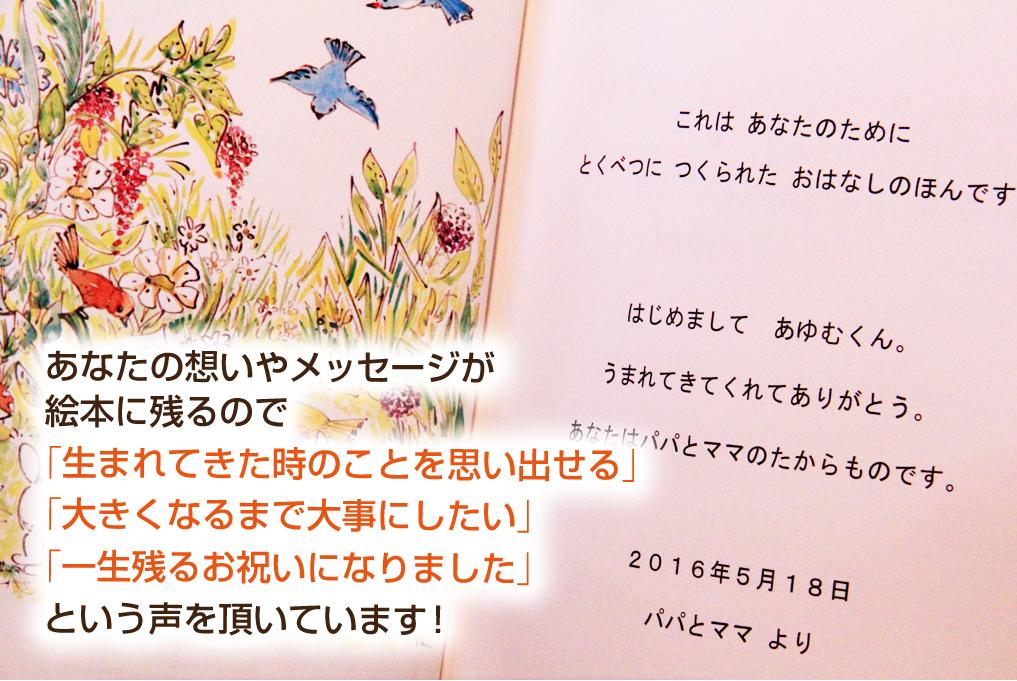 これは あなたのために
とくべつに つくられた おはなしのほんです
はじめまして あゆむくん。
うまれてきてくれてありがとう。
あなたはパパとママのたからものです。
2016年5月18日
パパとママ より
あなたの想いやメッセージが
絵本に残るので
「生まれてきた時のことを思い出せる」
「大きくなるまで大事にしたい」
「一生残るお祝いになりました」
という声を頂いています!